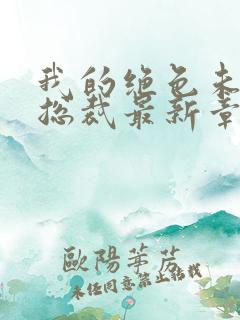 我的绝色未
总裁最新章
歐陽華芳
未经同意禁止转载